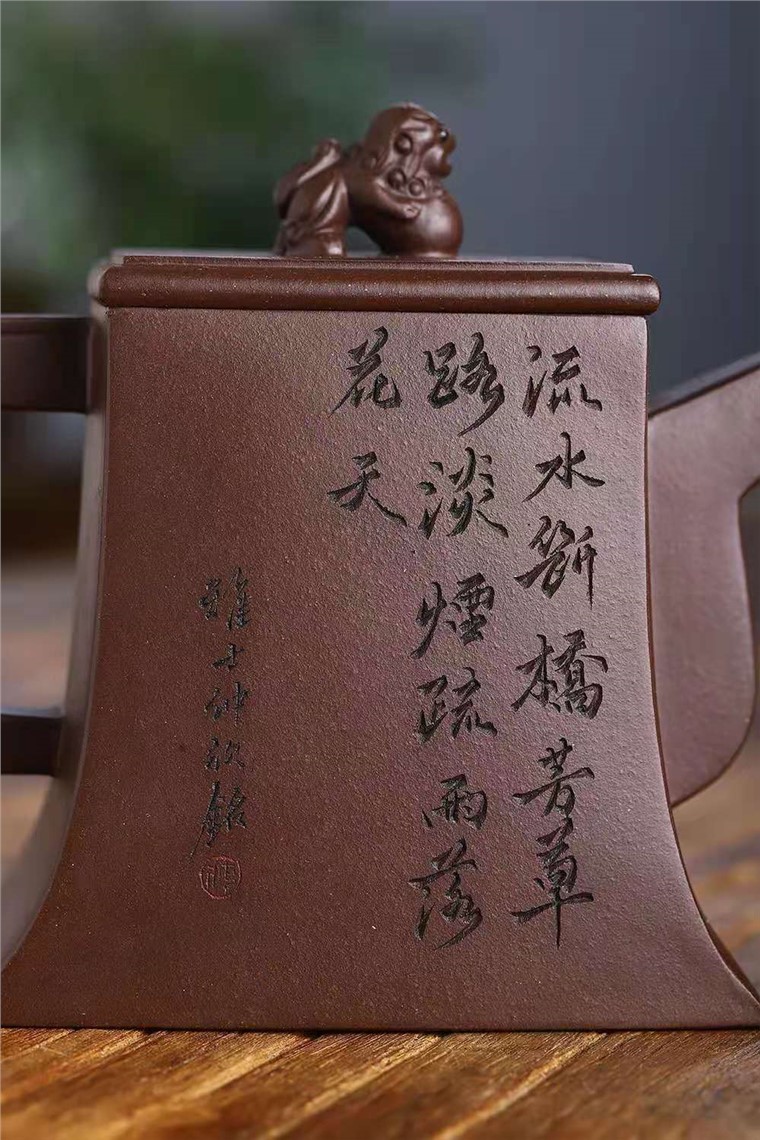 流水斷橋芳草
路淡煙疏雨落
花天
士仲銘